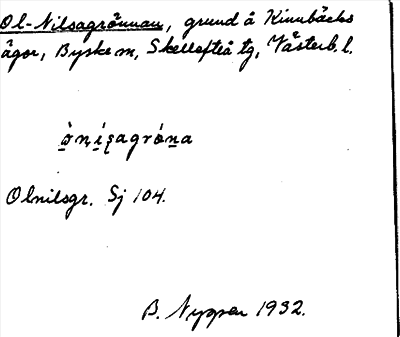 Ol-Nilsagrånnan, grund å Kinnbäcks
ägor, Byske sn, Skellefteå tg, Västerb. l.
Olnilsgr. Sj 104.
B. Nyman 1932.